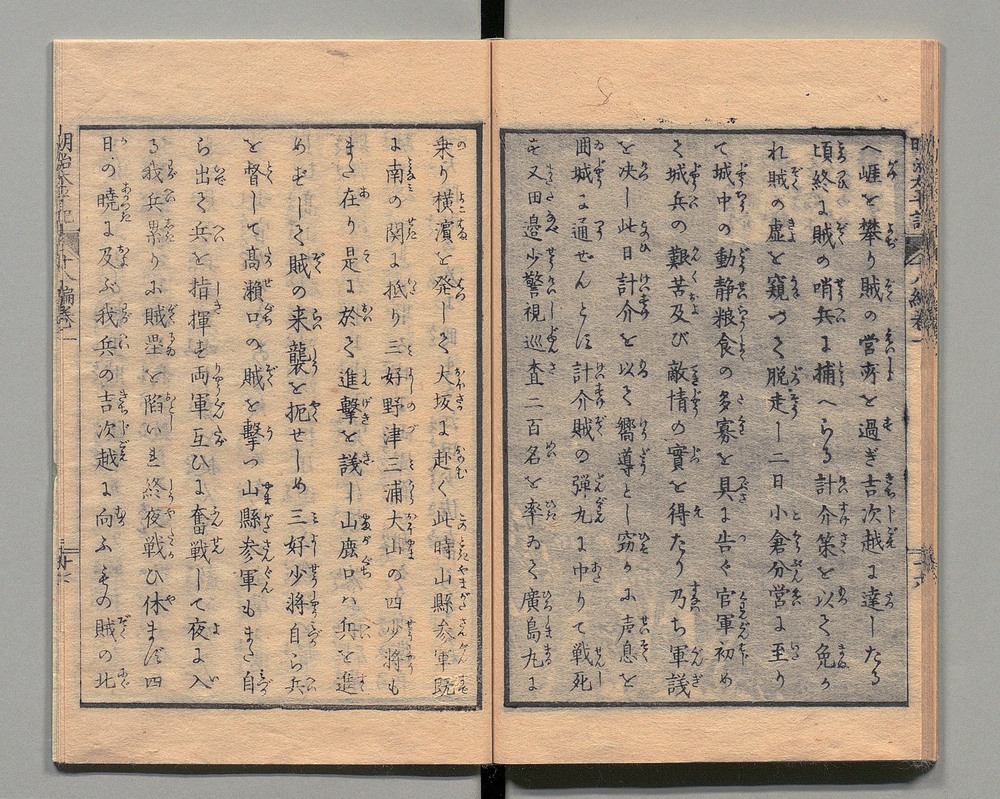 へ崕を攀り賊の営所を過ぎ吉次越に達したる
頃終に賊の哨兵に捕へらる計介策を以て免か
れ賊の虚を窺つて脱走し二日小倉分営に至り
て城中の動静粮食の多寡を具に告ぐ官軍初め
て城兵の艱苦及び敵情の實を得たり乃ち軍議
を決し此日計介を以て嚮導とし窃かに声息を
囲城に通ぜんとす計介賊の弾丸に中りて戦死
す又田邉少警視巡査二百名を率ゐて廣島丸に
乗り横濵を発して大坂に赴く此時山縣参軍既
に南の関に抵り三好野津三浦大山の四少将も
また在り是に於て進撃を議し山鹿口ハ兵を進
めずして賊の来襲を扼せしめ三好少将自ら兵
を督して髙瀬口の賊を撃つ山縣参軍もまた自
ら出て兵を指揮す両軍互ひに奮戦して夜に入
る我兵累りに賊塁を陥いれ終夜戦ひ休まず四
日の暁に及ぶ我兵の吉次越に向ふもの賊の北